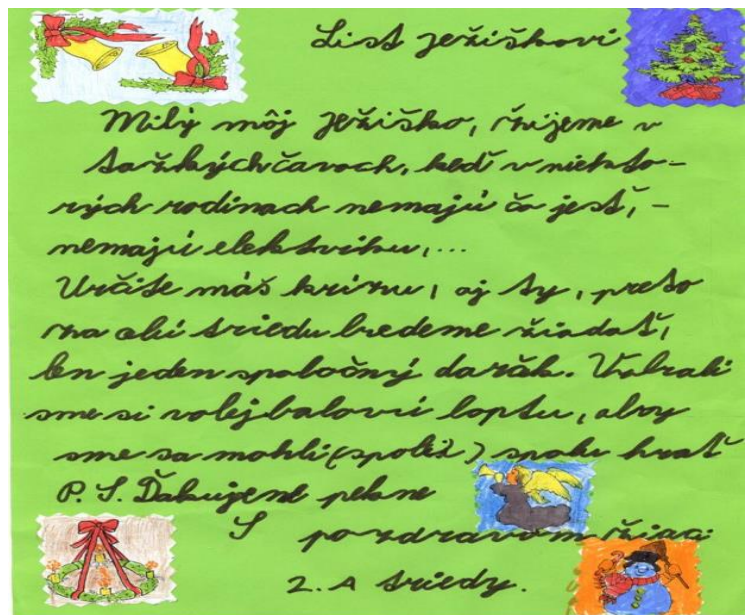 List Ježiškovi
Milý môj Ježiško, žijeme v
ťažkých časoch, keď v niekto-
rých rodinach nemajú čo jesť, -
nemajú elektriku,...
Určite máš krízu, aj ty, preto
za celú triedu budeme žiadať,
len jeden spoločný darčk. Vybrali
sme si volejbalovú loptu, aby
sme sa mohli (spolu) spolu hrať
P. S. Ďakujeme pekne
S pozdravom žiaci
2. A triedy.